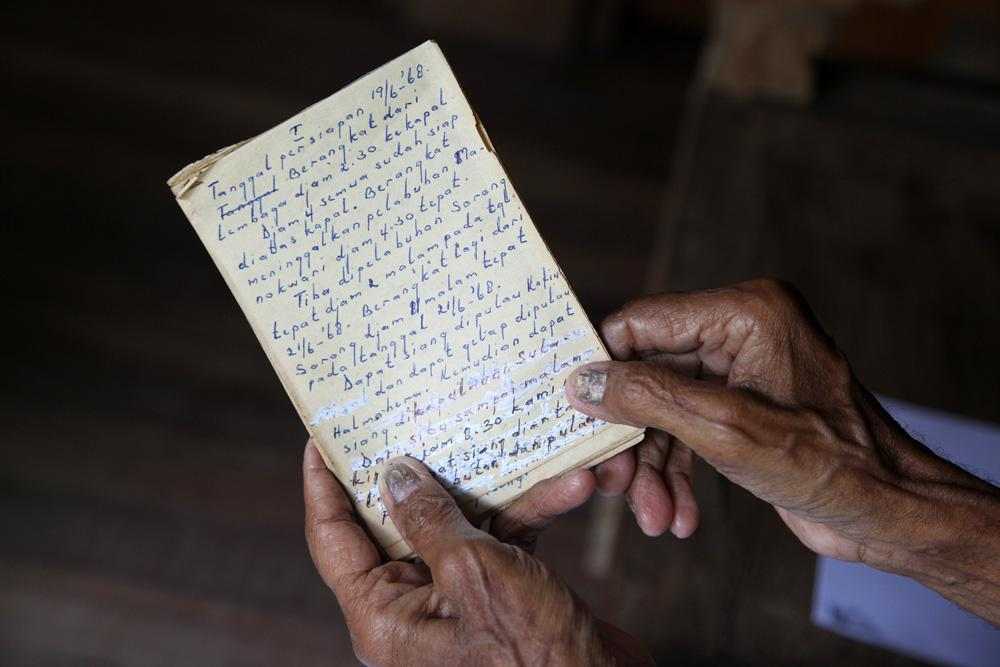 I
Tanggal persiapan 19/6-'68.
Tanggal Berangkat dari
Lembaga djam 2.30 kekapal
Djam 4 semua sudah siap
diatas kapal. Berangkat
meninggalkan pelabuhan Ma-
nokwari djam 4.30 tepat.
Tiba dipelabuhan Sorong
tepat djam 2 malam pada tgl.
21/6-'68. Berangkat lagi dari
Sorong djam malam tepat
pada tanggal 21/6-'68.
Dapat siang dipulau
dan dapat gelap dipulau
Halmahera Kemudian dapat
siang
sampai malam
Dari djam 8.30 kami
siang diantara
dan pulau